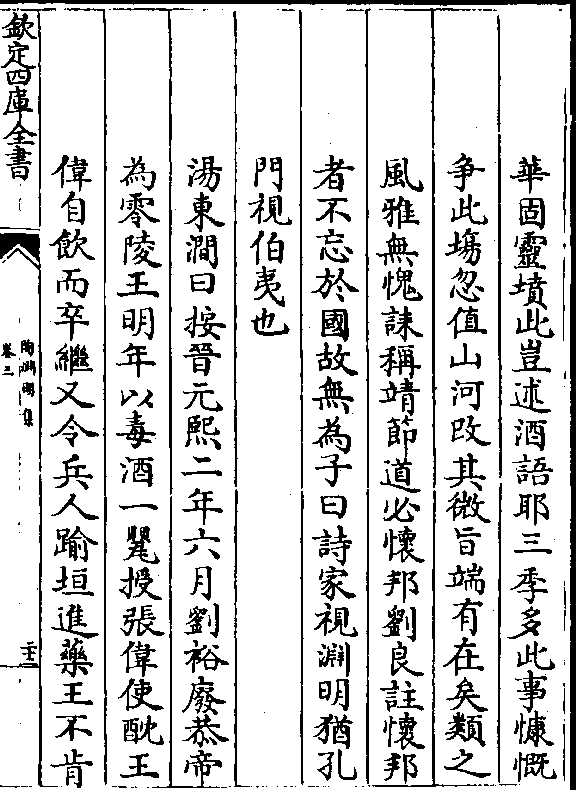 華固靈墳此豈述酒語耶三季多此事慷慨
争此塲忽值山河改其微旨端有在矣類之
風雅無愧誄稱靖節道必懷邦劉良註懷邦
者不忘於國故無為子曰詩家視淵明猶孔
門視伯夷也
湯東澗曰按晉元熙二年六月劉裕廢恭帝
為零陵王明年以毒酒一甖授張偉使酖王
偉自飲而卒繼又令兵人踰垣進藥王不肯
欽定四庫全書
陶淵明集
卷三